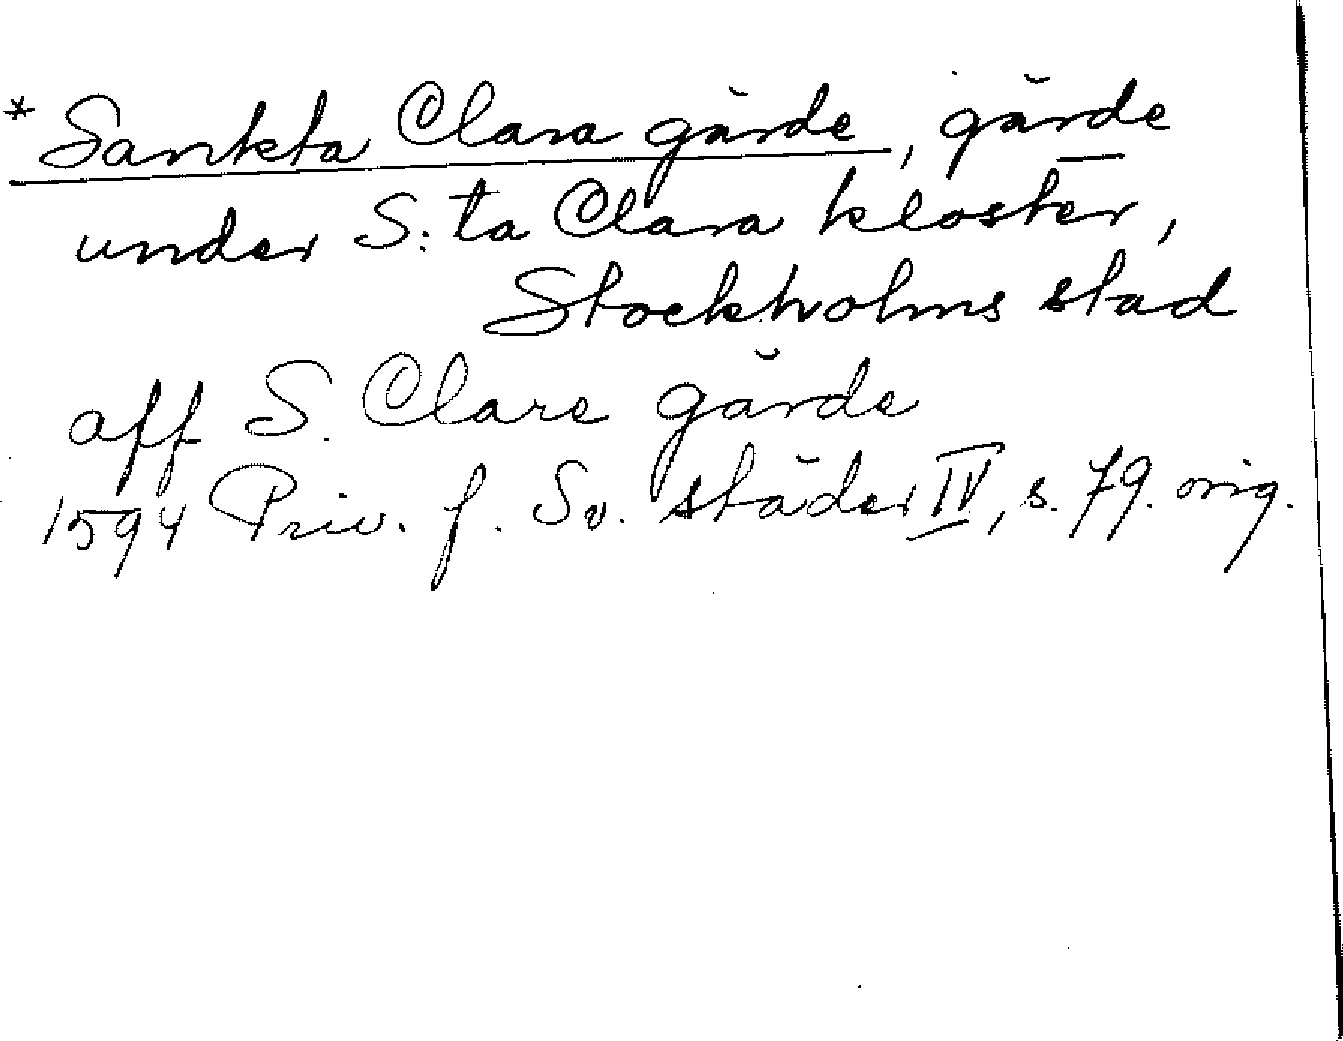 * Sankta Clara gärde, gärde
under S:ta Clara kloster,
Stockholms stad
aff S. Clare gärde
1594 Priv. f. Sv. städer IV, s. 79. orig.